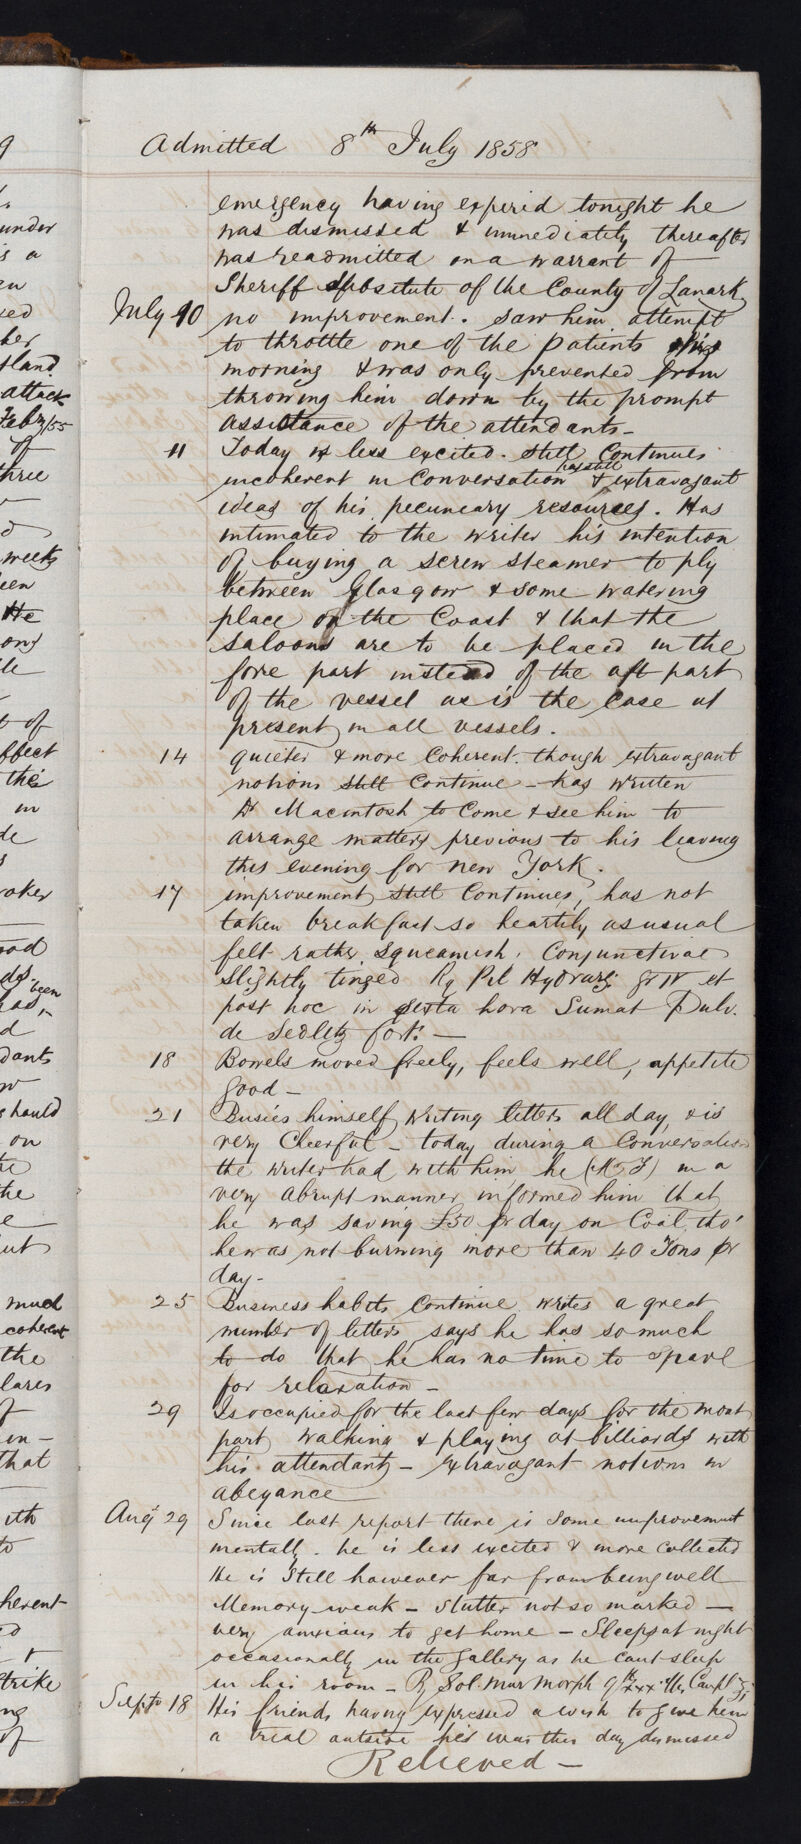 Admitted 8th July 1858
emergency having expired tonight he
was dismissed & immediately thereafter
was readmitted on a warrant of
Sheriff Substitute of the County of Lanark
July 10 no improvement. Saw him attempt
to throttle one of the patients this
morning & was only prevented from
throwing him down by the prompt
assistance of the attendants -
11 Today is less excited. Still Continues
incoherent in Conversation & has still extravagant
ideas of his pecuneary resources. Has
intimated to the writer his intention
of buying a screw steamer to ply
between Glasgow & some watering
place on the Coast & that the
saloons are to be placed in the
fore part instead of the aft part
of the vessel as is the case at
present in all vessels.
14 quieter & more Coherent. though extravagant
notions still Continue - has written
Dr Macintosh to Come & see him to
arrange matters previous to his leaving
this evening for new York.
17 improvement still Continues, has not
taken breakfast so heartily as usual
felt rather squeamish. Conjunctivae
slightly tinged Rx Pil Hydrarg: gr IV et
post hoc in sexta hora Sumat Pulv.
de Sedlitz fort: -
18 Bowels moved freely, feels well, appetite
good -
21 Busies himself writing letters all day, & is
very Cheerful - today during a Conversation
the writer had with him, he in a
very abrupt manner informed him that
he was saving £50 pr day on Coal, tho'
he was not burning more than 40 Tons pr
day -
25 Business habits Continue writes a great
number of letters, says he has so much
to do that he has no time to spare
for relaxation -
29 Is occupied for the last few days for the most
part walking & playing at billiards with
his attendants - extravagant notions in
abeyance
Augt 29 Since last report there is some improvement
mentally. he is less excited & more collected
He is Still however far from being well
Memory weak - stutter not so marked -
very anxious to get home - Sleeps at night
occasionally in the Gallery as he cant sleep
in his room - Rx Sol. Mur Morph
Septr 18 His friends having expressed a wish to give him
a trial outside he was this day dismissed
Relieved -